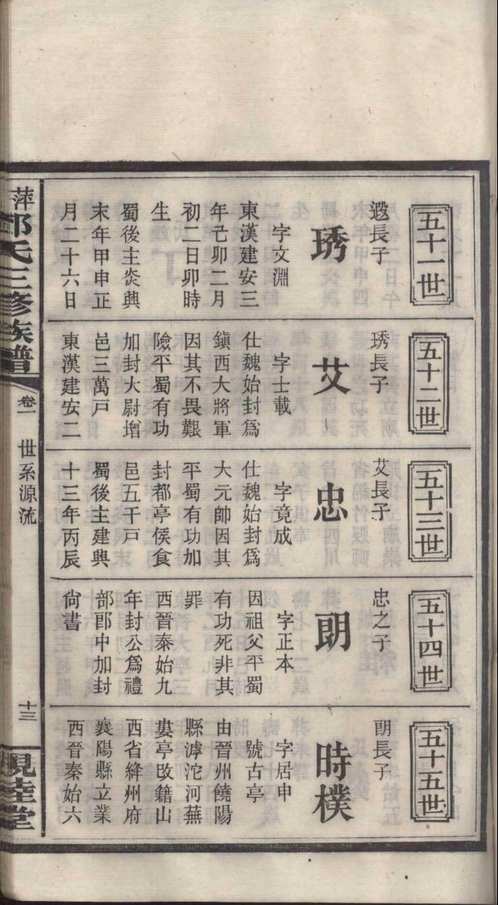 五十一世
遐長子
琇
字文淵
東漢建安三
年己卯二月
初二日卯時
生
蜀後主炎興
末年甲申正
月二十六日
五十二世
琇長子
艾
字士載
仕魏始封爲
鎮西大將軍
因其不畏艱
險平蜀有功
加封大尉增
邑三萬戶
東漢建安二
五十三世
艾長子
忠
字竟成
仕魏始封爲
大元帥因其
平蜀有功加
封都亭侯食
邑五千戶
蜀後主建興
十三年丙辰
五十四世
忠之子
朗
字正本
因祖父平蜀
有功死非其
罪
西晉秦始九
年封公爲禮
部郎中加封
尙書
五十五世
朗長子
時樸
字居申
號古亭
由晉州饒陽
縣滹沱河蕪
蔞亭改籍山
西省絳州府
襄陽縣立業
西晉秦始六
萍氏三修族譜
卷一
世系源流
十三
睦堂